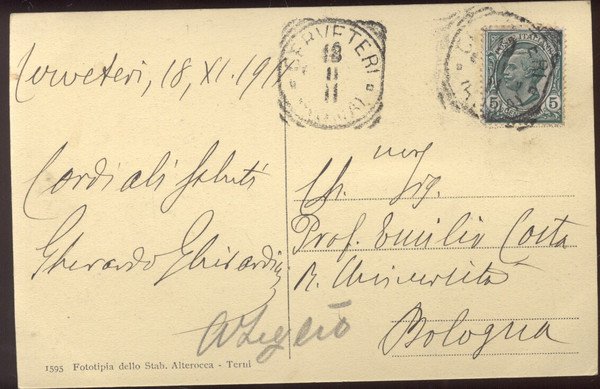 Cerveteri, 18, XI. 191
Cordiali saluti
Gherardo Ghirardini
CERVETERI
18
11
11
(ROMA)
POSTE ITALIANE
5 5
Ch. mo Sig.
Prof. Emilio Costa
R. Università
Bologna
1595 Fototipia dello Stab. Alterocca - Terni